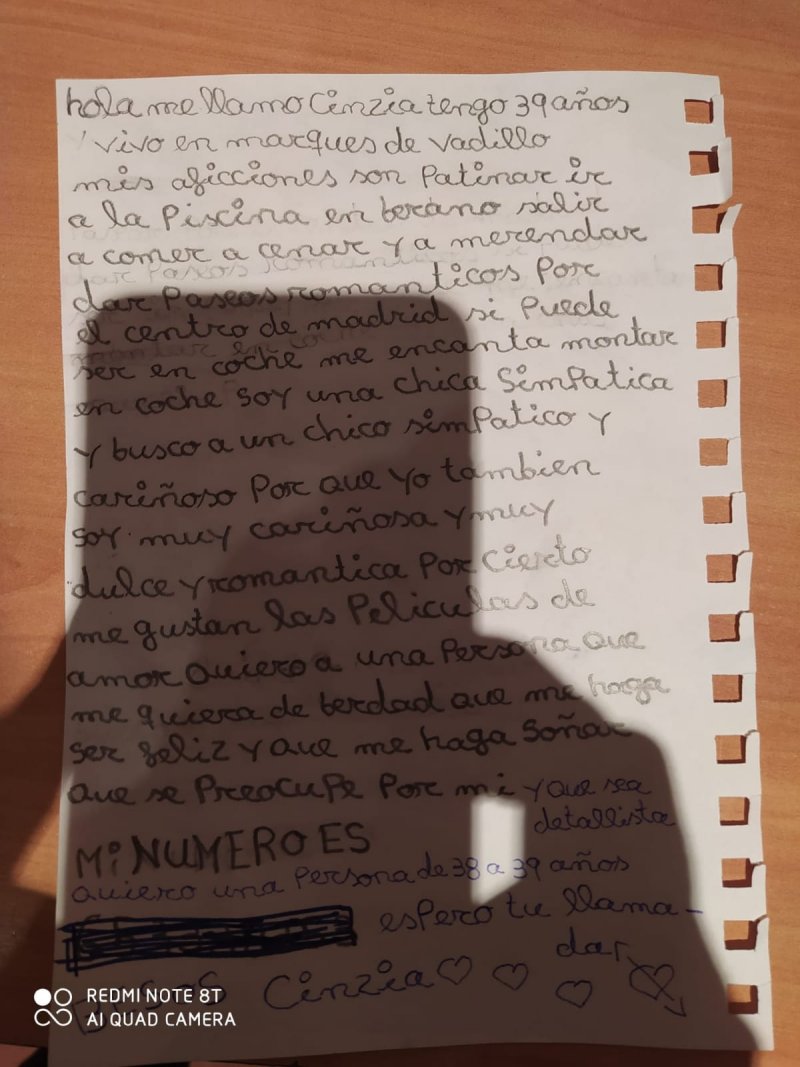 hola me llamo Cinzia tengo 39 años
vivo en marques de vadillo
mis aficciones son Patinar ir
a la Piscina en berano salir
a comer a cenar y a merendar
dar Paseos romanticos Por
el centro de madrid si Puede
ser en coche me encanta montar
en coche soy una chica SimPatica
y busco a un chico simPatico y
cariñoso Por que yo tambien
soy muy cariñosa y muy
dulce y romantica Por Cierto
me gustan las Peliculas de
amor quiero a una Persona que
me quiera de berdad que me haga
ser feliz y que me haga Soñar
que se Preocupe Por mi y que sea
detallista
Mi NUMERO ES
quiero una Persona de 38 a 39 años
esPero tu llama-
da
Besos Cinzia
REDMI NOTE 8T
AI QUAD CAMERA